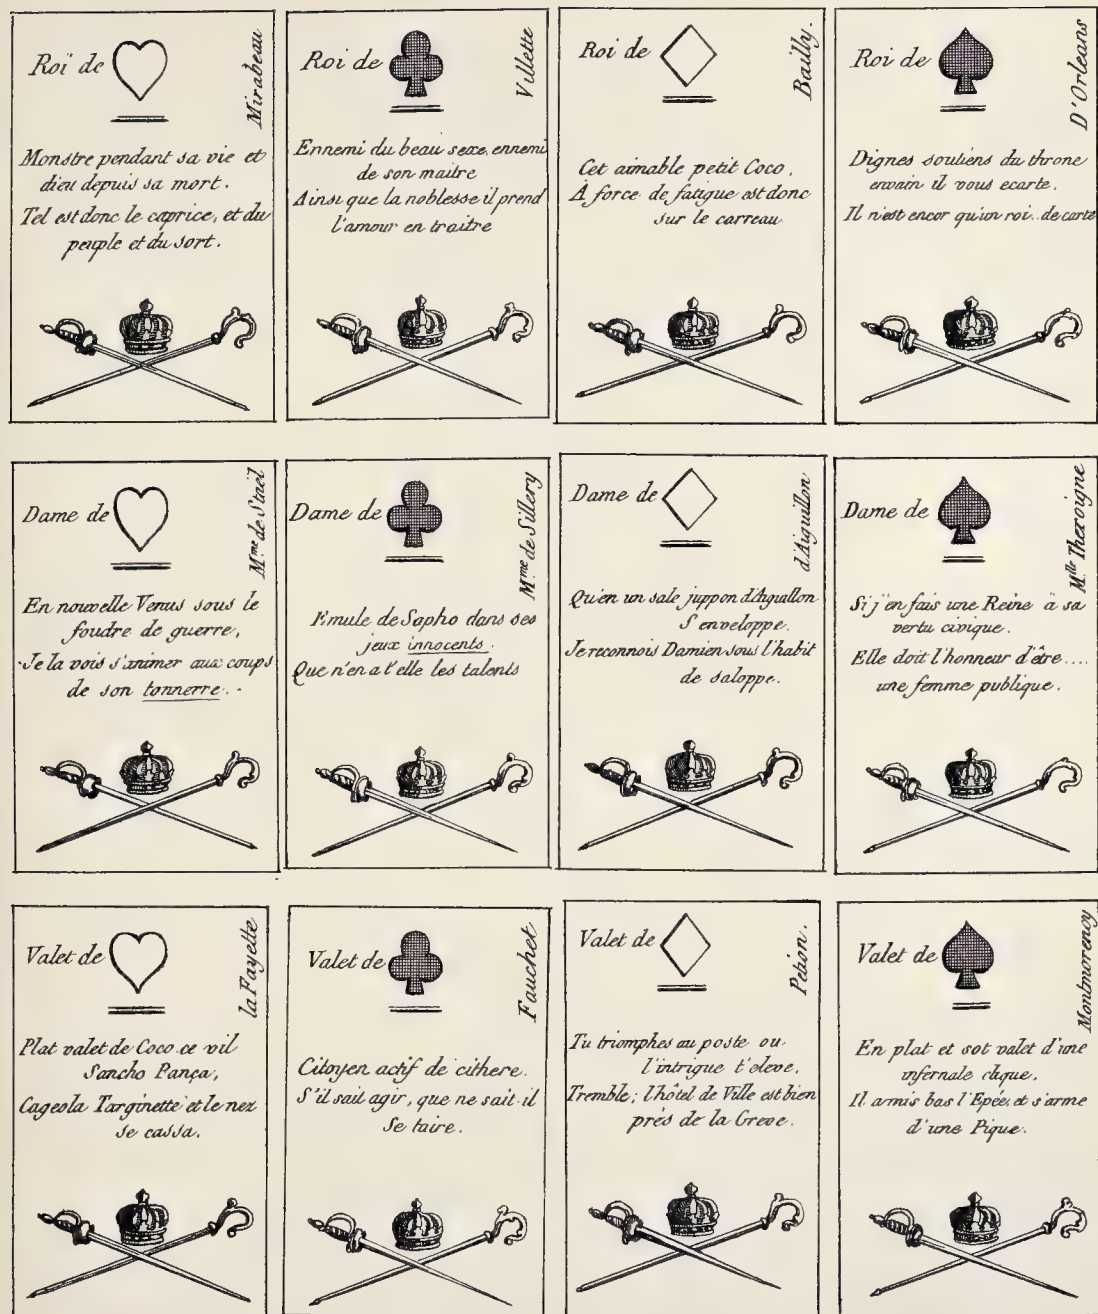 Roi de
Mirabeau
Monstre pendant sa vie et
dieu depuis sa mort.
Tel est donc le caprice, et du
peuple et du sort.
Roi de
Villette
Ennemi du beau sexe, ennemi
de son maitre
Ainsi que la noblesse il prend
l'amour en traitre
Roi de
Bailly.
Cet aimable petit Coco,
À force de fatigue est donc
sur le carreau
Roi de
D'Orleans
Dignes soutiens du throne
envain il vous ecarte.
Il n'est encor qu'un roi.. de carte
Dame de
Mme de Stael
En nouvelle Venus sous le
foudre de guerre,
Je la vois s'animer aux coups
de son tonnerre..
Dame de
Mme de Sillery
Emule de Sapho dans ses
jeux innocents.
Que n'en a t'elle les talents
Dame de
d'Aiguillon
Qu'en un sale juppon d'Aguillon
S'enveloppe.
Je reconnois Damien sous l'habit
de saloppe.
Dame de
Mlle Theroigne
Si j'en fais une Reine à sa
vertu civique.
Elle doit l'honneur d'être....
une femme publique.
Valet de
la Fayette
Plat valet de Coco ce vil
Sancho Pança,
Cageola Targinette et le nez
se cassa.
Valet de
Fauchet
Citoyen actif de cithere.
S'il sait agir, que ne sait il
Se taire.
Valet de
Petion.
Tu triomphes au poste ou
l'intrigue t'eleve,
Tremble; l'hôtel de Ville est bien
près de la Greve.
Valet de
Montmorency
En plat et sot valet d'une
infernale clique,
Il a mis bas l'Epée, et s'arme
d'une Pique.